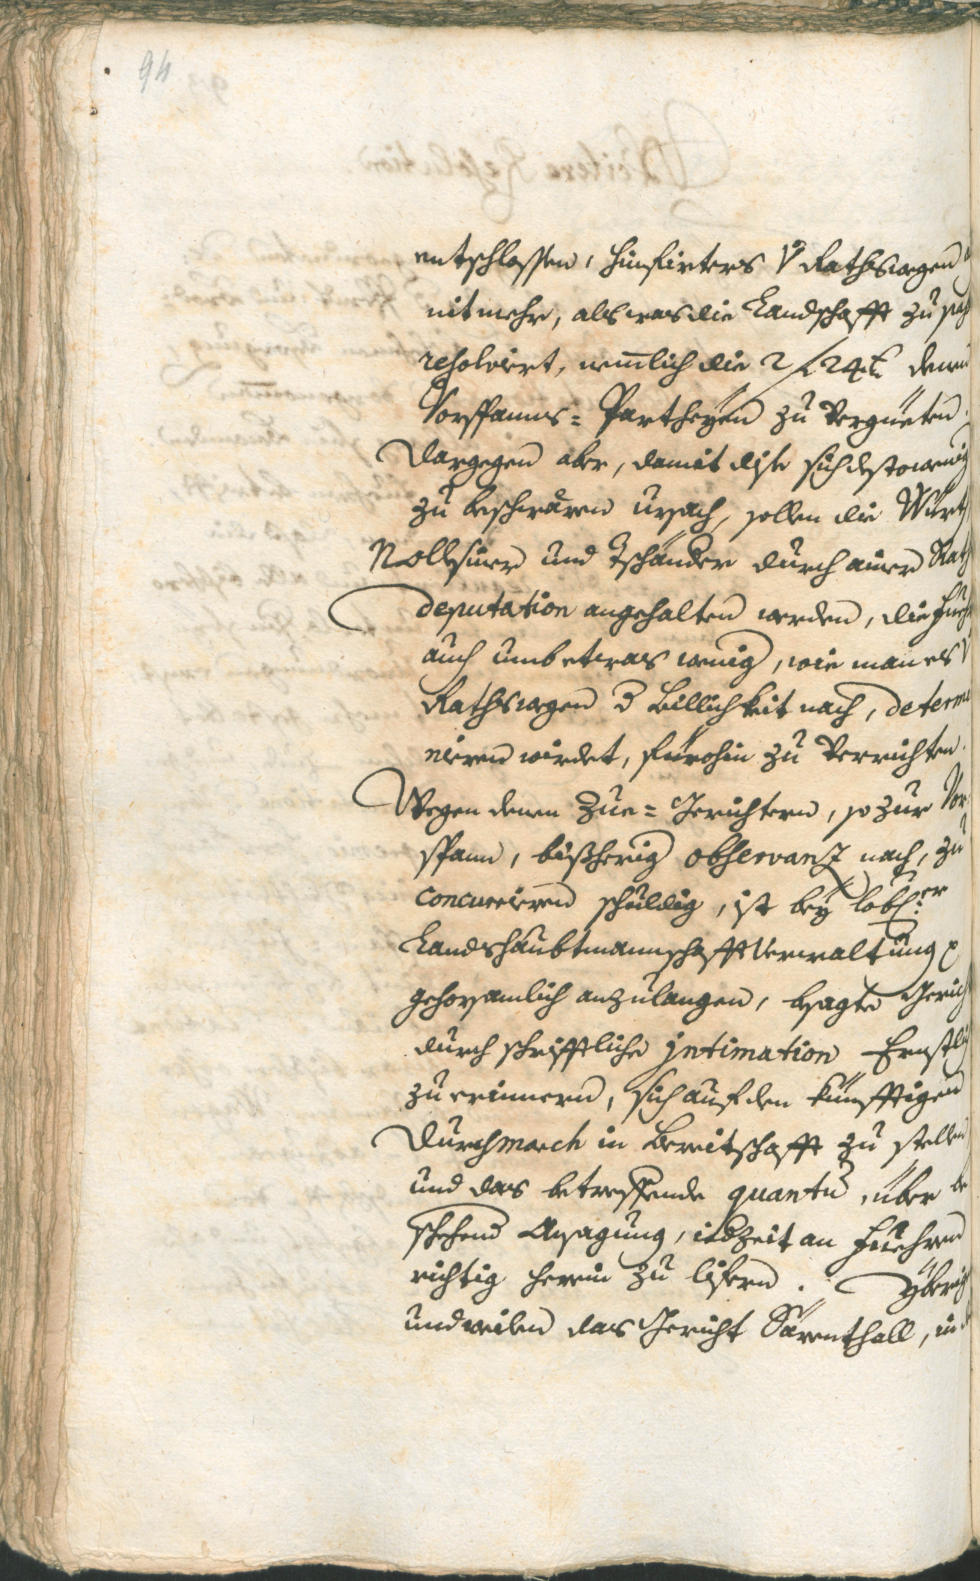 94
entschlossen, hinfirters V Rathswegen
nit mehr, als was die Landschafft zu
resolviert, nemlich die 2 / 24 x denen
Vorspanns= Partheyen zu Vergüeten.
Dargegen aber, damit dise sich desto wenig
zu beschwären ursach, sollen die Würth
Nollsinr und Tschander durch ainer Rath
deputation angehalten werden, die Fuehr
auch umb etwas wenig, wie man es V
Rathswegen d Billichkeit nach, determi
nieren wirdet, fürohin zu Verrichten.
Wegen denen Zue= Gerichtern, so zur Vor
spann, bißherig observanz nach, zu
concurrieren schuldig, ist bey lobl:er
Landshaubtmannschafft Verwaltung p
gehorsamlich anzulangen, besagte Gerich
durch schrifftliche jntimation Ernstlich
zu erinnern, sich auf den künfftigen
Durchmarch in Bereitschafft zu stellen
und das betreffende quantu, über be
schehend Ansagung, iedzeit an Fuehren
richtig herein zu lifern. Yberig
und weilen das Gericht Särenthall, in